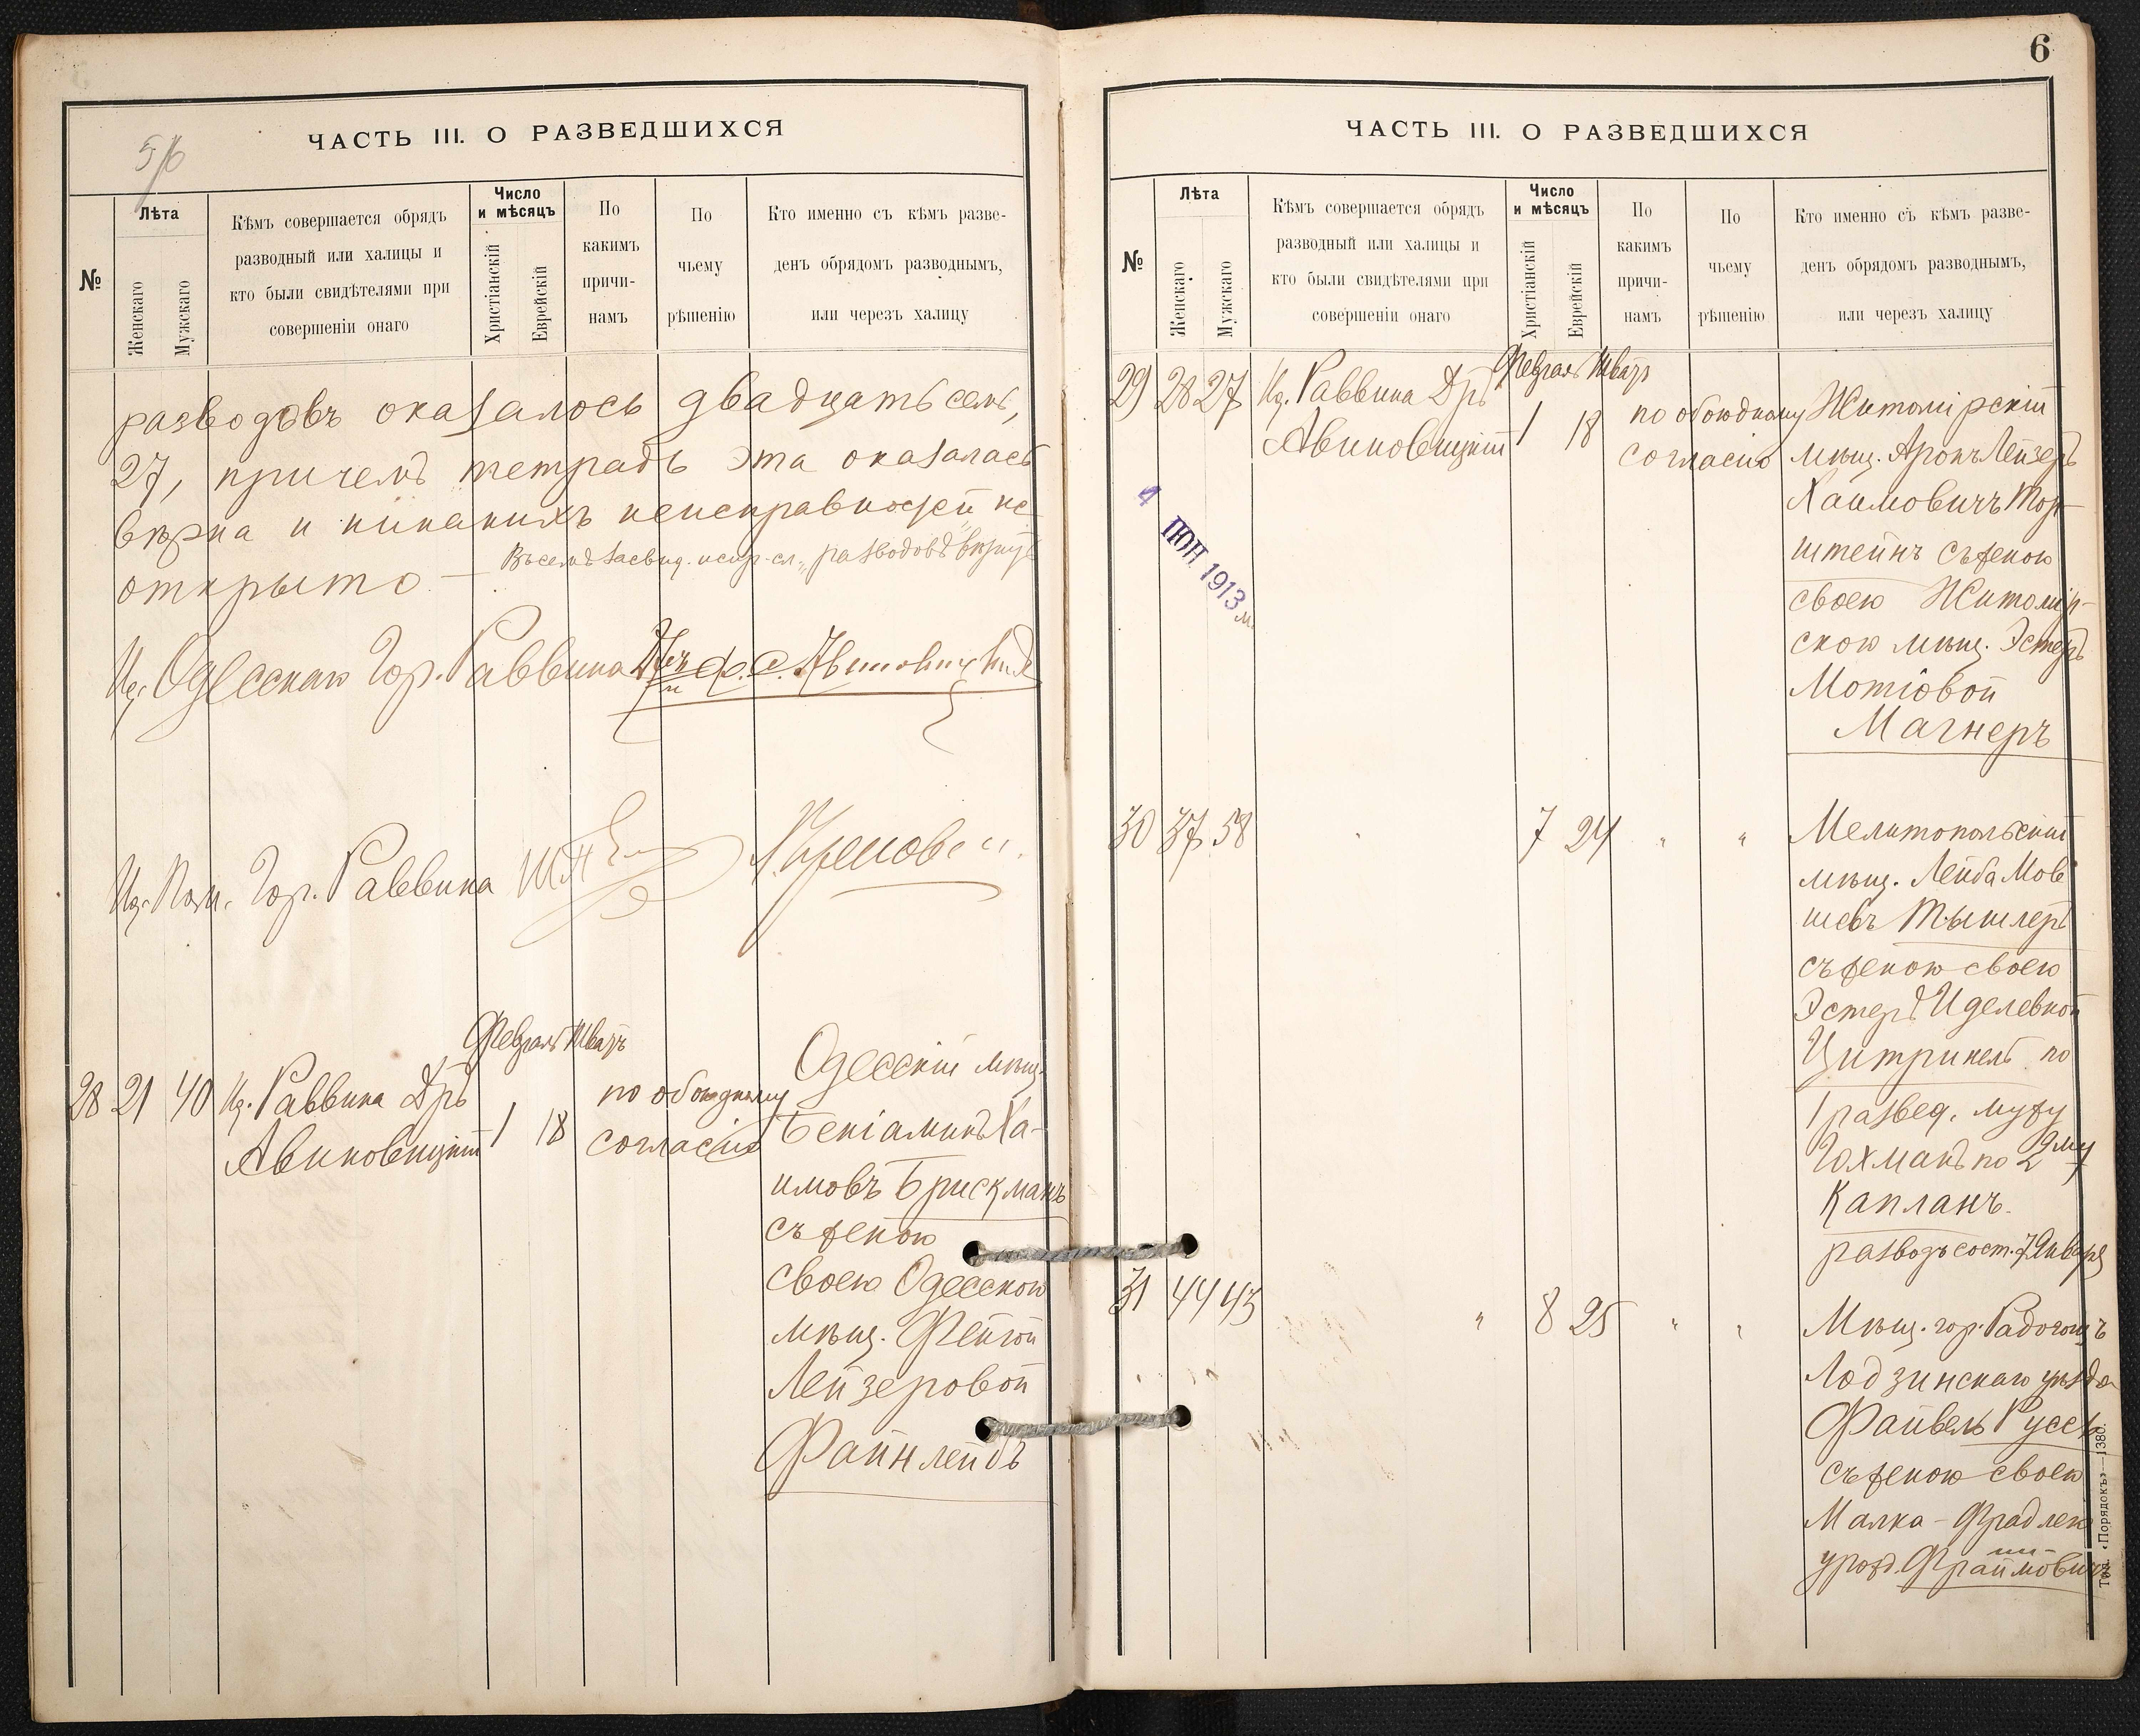 5/6
ЧАСТЬ III. О РАЗВЕДШИХСЯ
№
Лѣта
Женскаго
Мужскаго
Кѣмъ совершается обрядъ
разводный или халицы и
кто были свидѣтелями при
совершеніи онаго
Число
и мѣсяцъ
Христіанскій
Еврейскій
По
какимъ
причи-
намъ
По
чьему
рѣшенію
Кто именно съ кѣмъ разве-
денъ обрядомъ разводнымъ,
или черезъ халицу
разводовъ оказалось двадцать семь,
27, причемъ тетрадь эта оказалась
вѣрна и никакихъ неисправностей не
открыто —
Въ семъ засвид. испр. сл. „разводовъ" вѣрну
Ид. Одесскаго Гор. Раввина
Ид. Пом. Гор. Раввина
Февраль Шватъ
28 21 40 Ид. Раввина Дръ
Авиновицкій 1 18
по обоюдному
согласію
Одесскій мѣщ.
Беніаминъ Ха-
имовъ Брискманъ
съ женою
своею Одесскою
мѣщ. Фейгой
Лейзеровой
Файнлейбъ
6
ЧАСТЬ III. О РАЗВЕДШИХСЯ
№
Лѣта
Женскаго
Мужскаго
Кѣмъ совершается обрядъ
разводный или халицы и
кто были свидѣтелями при
совершеніи онаго
Число
и мѣсяцъ
Христіанскій
Еврейскій
По
какимъ
причи-
намъ
По
чьему
рѣшенію
Кто именно съ кѣмъ разве-
денъ обрядомъ разводнымъ,
или черезъ халицу
Февраль Шватъ
29 28 27 Ид. Раввина Дръ
Авиновицкій 1 18
по обоюдному
согласію
Житомірскій
мѣщ. Аронъ Лейзеръ
Хаимовичъ Тор-
штейнъ съ женою
своею Житомір-
скою мѣщ. Эстеръ
Мотіовой
Магнеръ
4 ІЮН. 1913
30 37 58 " 7 24 " "
Мелитопольскій
мѣщ. Лейба Мов
шевъ Тышлеръ
съ женою своею
Эстеръ Иделевной
Цитринель по
1 развед. мужу
Гохманъ по 2му
Капланъ.
разводъ сост. 7 Января
31 44 43 " 8 25 " "
Мѣщ. гор. Радогощъ
Лодзинскаго уѣзда
Файвель Руссъ
съ женою своею
Малка-Фрадлею
урожд. Фраймовичъ
Тип. «Порядокъ»—1380.